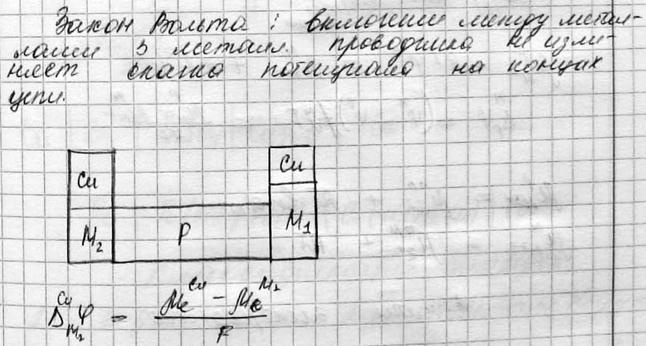 Закон Вольта: включение между метал-
лами 3 металл. проводника не изме-
няет скачка потенциала на концах
цепи.
Cu Cu
M₂ P M₁
Δ^{Cu}_{M₂}φ = (μₑ^{Cu} − μₑ^{M₂}) / F